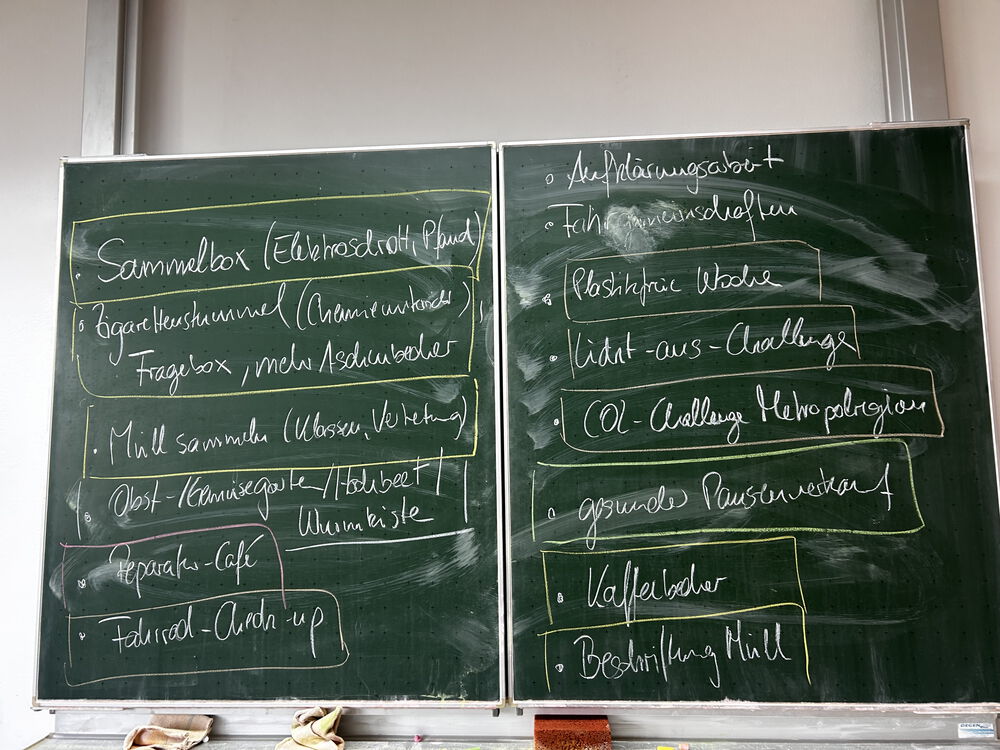 • Sammelbox (Elektroschrott, Pfand)
• Zigarettenstummel (Chemieunterricht),
Fragebox, mehr Aschenbecher
• Müll sammeln (Klassen, Vertretung)
• Obst-/Gemüsegarten/Hochbeet/
Wurmkiste
• Reparatur-Café
• Fahrrad-Check-up
• Aufklärungsarbeit
• Fahrgemeinschaften
• Plastikfreie Woche
• Licht-aus-Challenge
• CO2-Challenge Metropolregion
• gesunder Pausenverkauf
• Kaffeebecher
• Beschriftung Müll
DEGEN